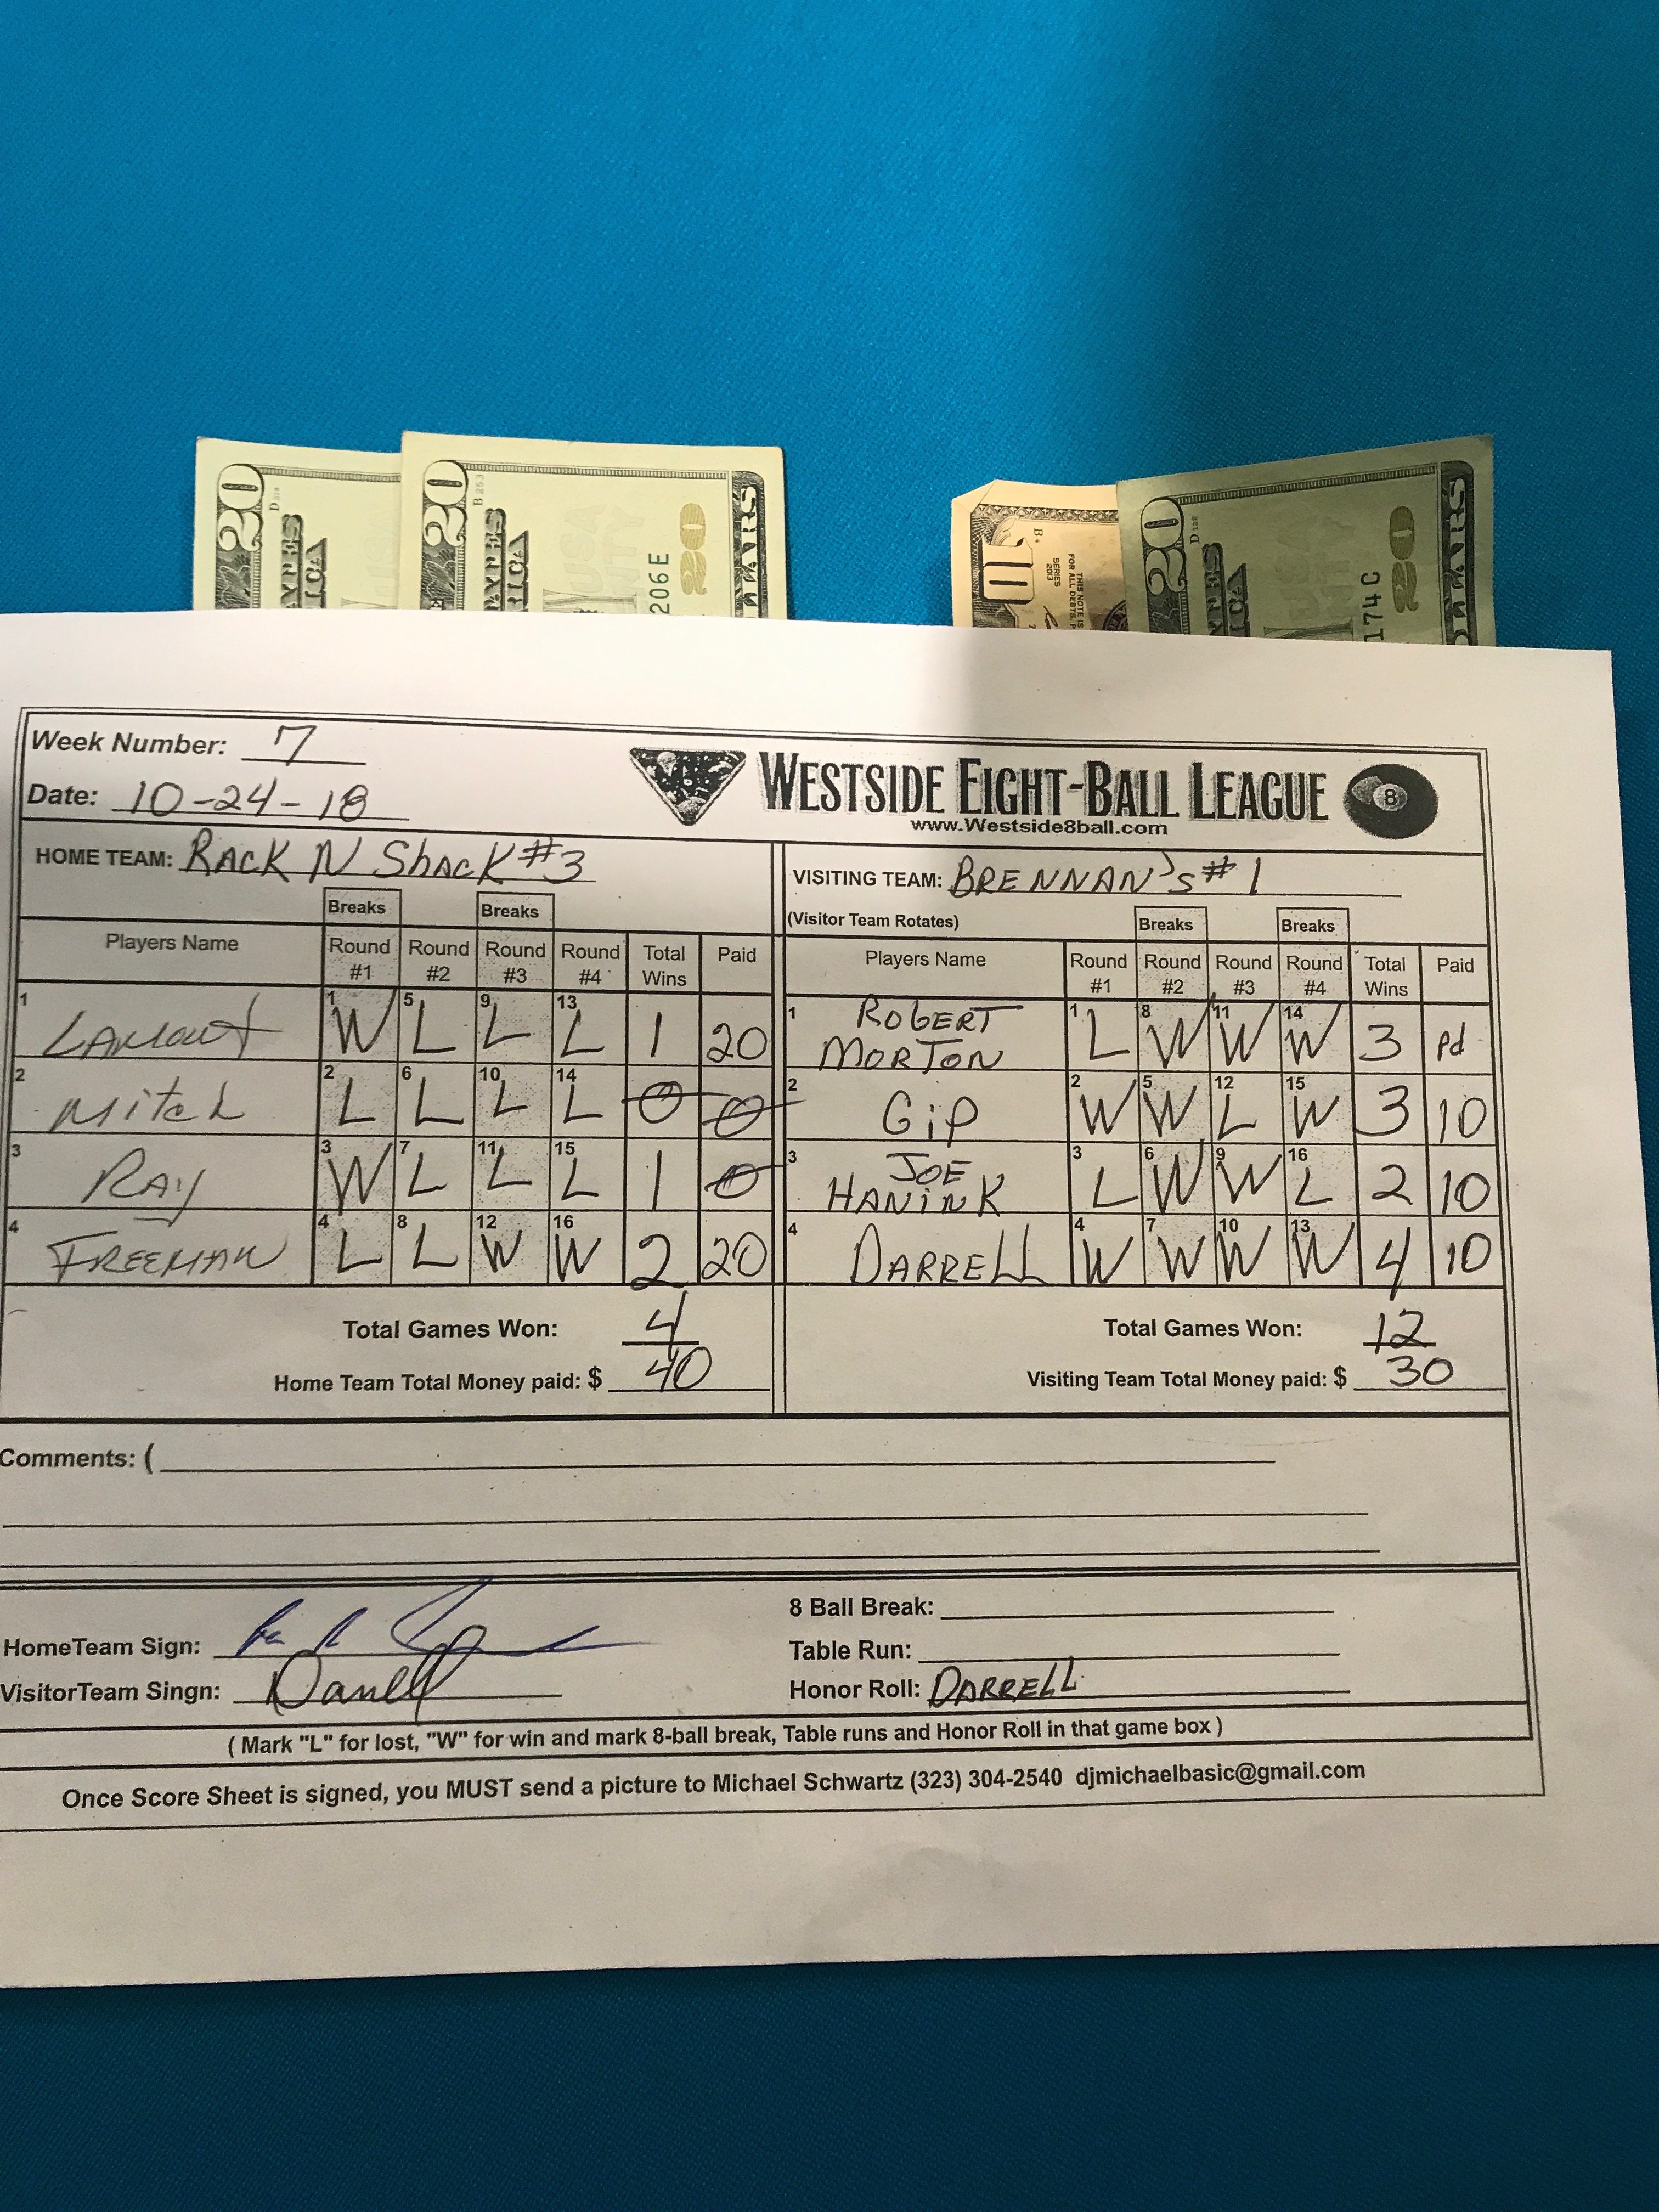 20 20 10 20
D B 253 B* D
AYNES AYNES THIS NOTE IS YNES
ICA RICA FOR ALL DEBTS, P ICA
SERIES 2013
206E 20 174C 20
LARS LARS
Week Number: 7
Date: 10-24-18
WESTSIDE EIGHT-BALL LEAGUE 8
www.Westside8ball.com
HOME TEAM: RACK N SHACK #3 VISITING TEAM: BRENNAN'S #1
(Visitor Team Rotates)
Breaks Breaks Breaks Breaks
Players Name Round #1 Round #2 Round #3 Round #4 Total Wins Paid Players Name Round #1 Round #2 Round #3 Round #4 Total Wins Paid
1 LAMONT 1 W 5 L 9 L 13 L 1 20 1 ROBERT MORTON 1 L 8 W 11 W 14 W 3 Pd
2 MITCH 2 L 6 L 10 L 14 L 0 0 2 GIP 2 W 5 W 12 L 15 W 3 10
3 RAY 3 W 7 L 11 L 15 L 1 0 3 JOE HANINK 3 L 6 W 9 W 16 L 2 10
4 FREEMAN 4 L 8 L 12 W 16 W 2 20 4 DARRELL 4 W 7 W 10 W 13 W 4 10
Total Games Won: 4 Total Games Won: 12
Home Team Total Money paid: $ 40 Visiting Team Total Money paid: $ 30
Comments: (
8 Ball Break:
HomeTeam Sign: Table Run:
VisitorTeam Singn: Darrell Honor Roll: DARRELL
( Mark "L" for lost, "W" for win and mark 8-ball break, Table runs and Honor Roll in that game box )
Once Score Sheet is signed, you MUST send a picture to Michael Schwartz (323) 304-2540 djmichaelbasic@gmail.com